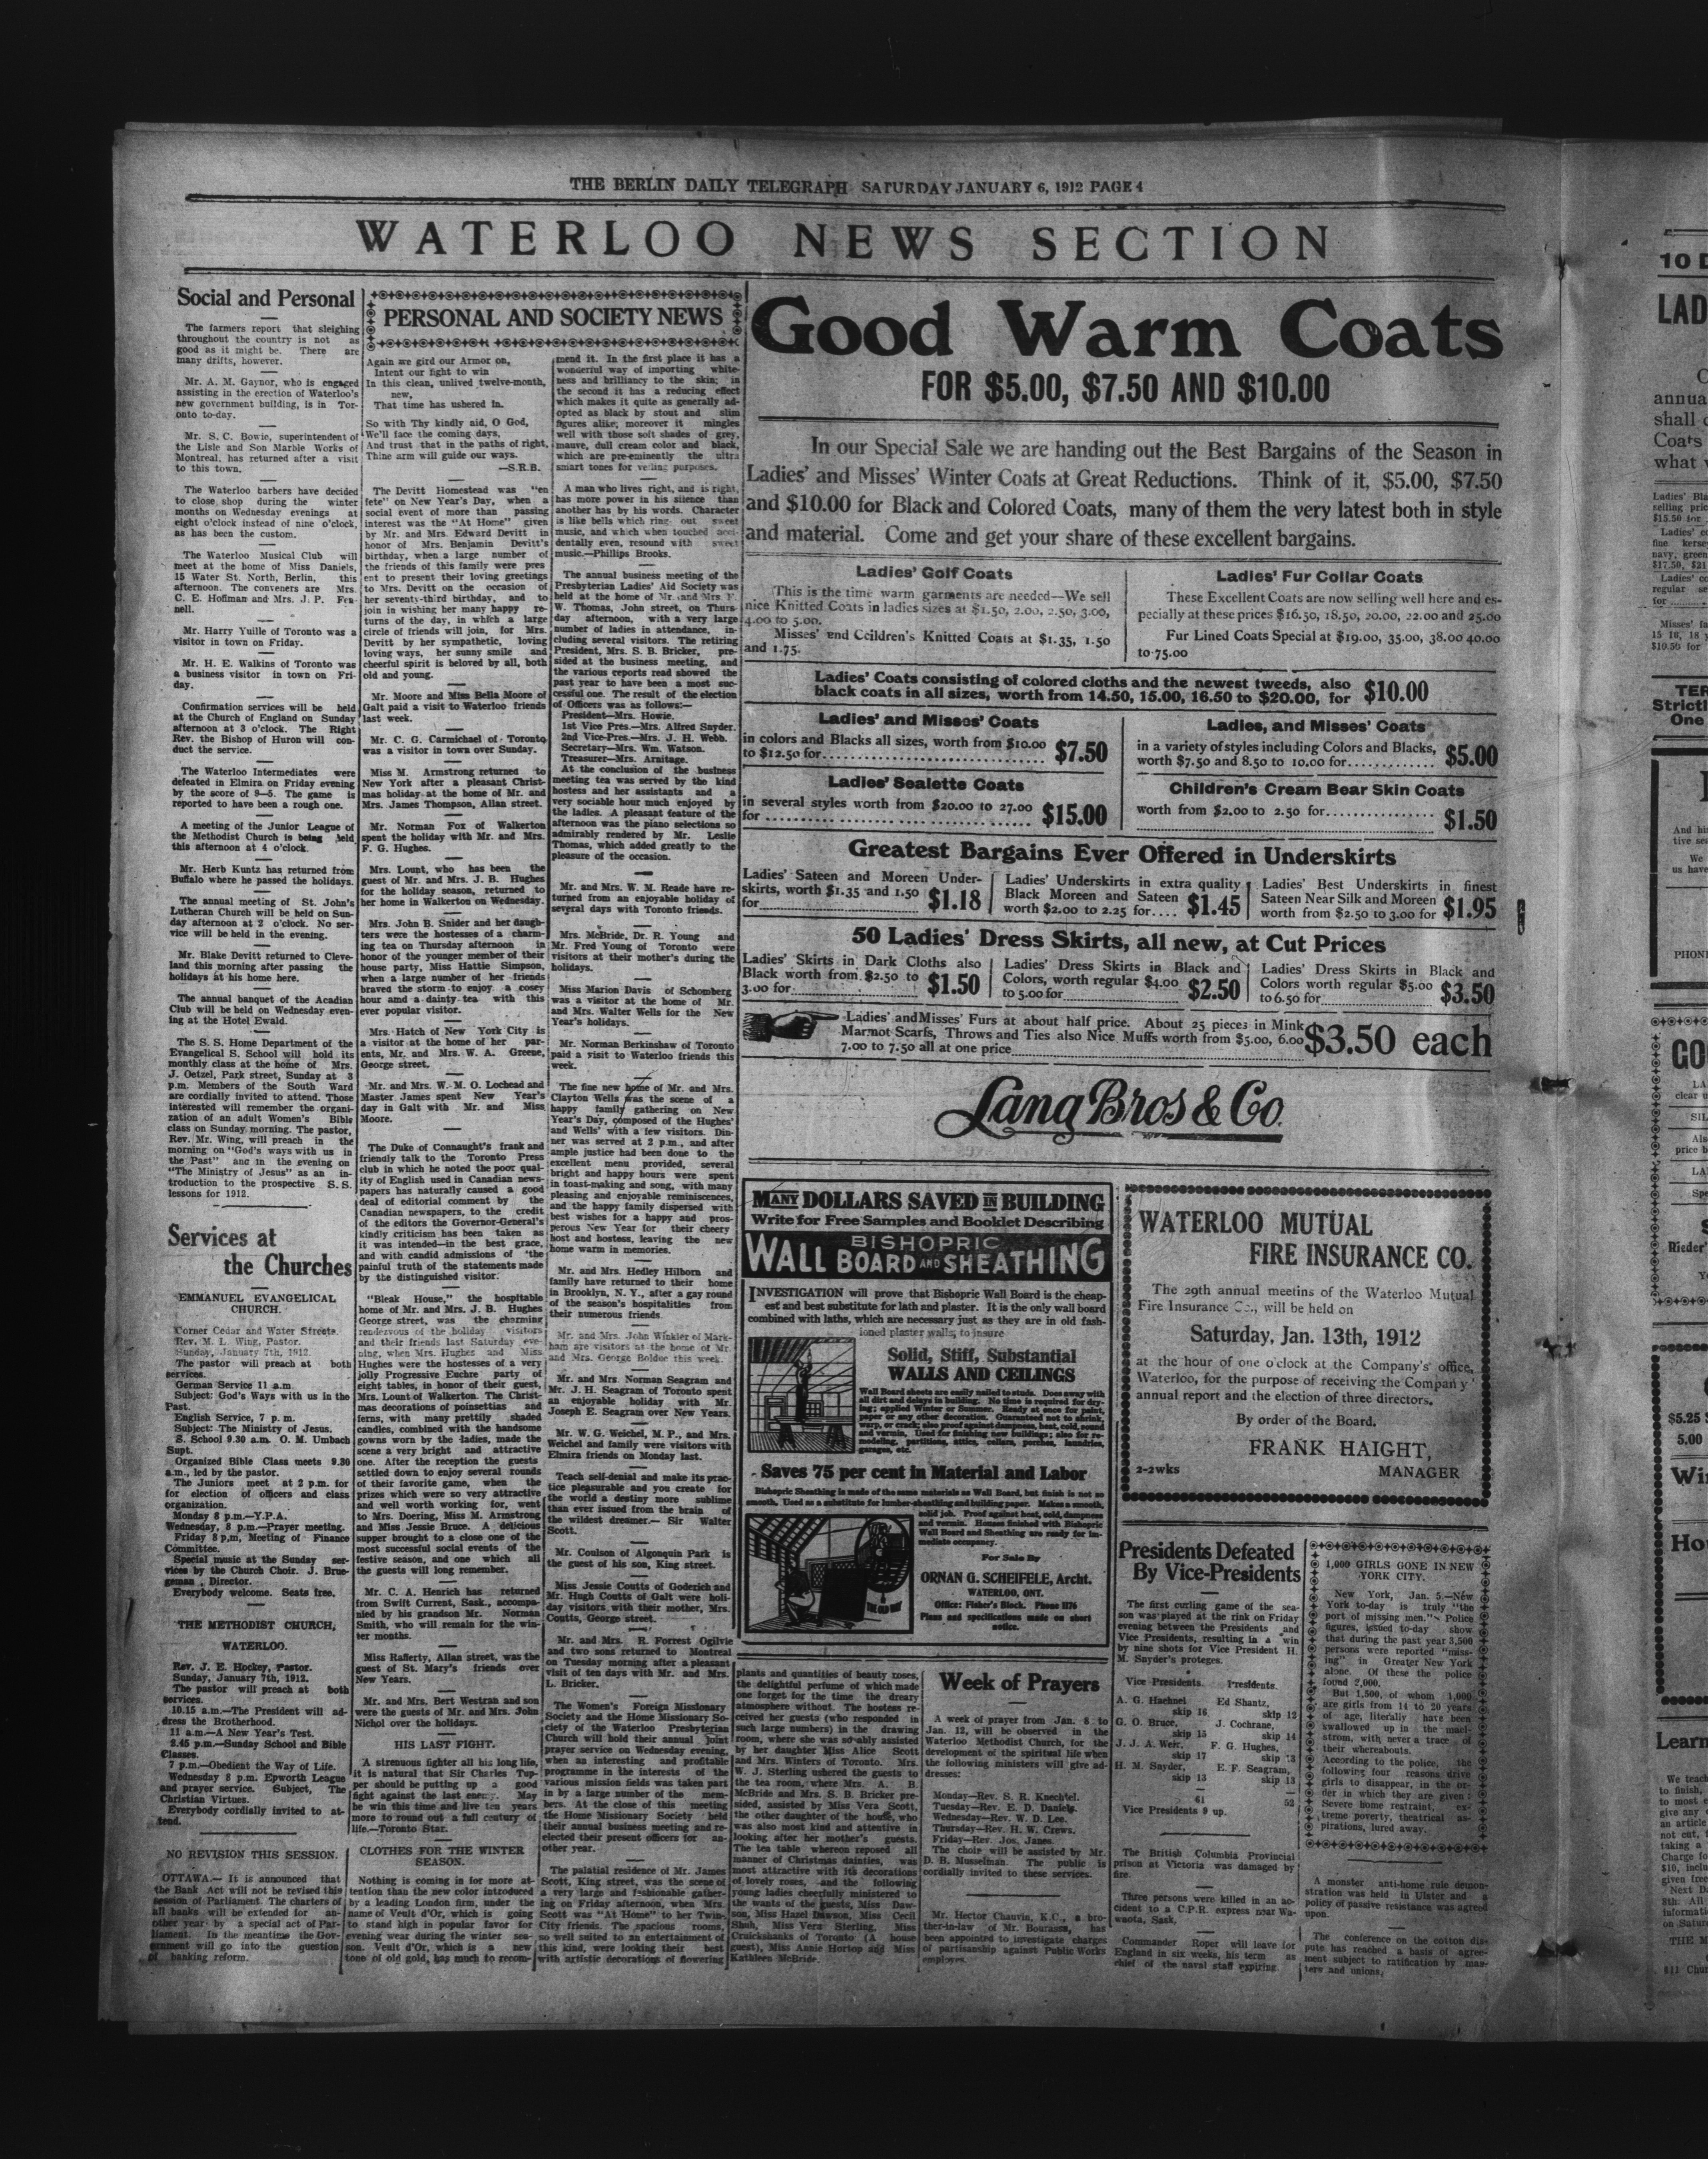 THE BERLIN DAILY TELEGRAPH SATURDAY JANUARY 6, 1912 PAGE 4
WATERLOO NEWS SECTION
Social and Personal
The farmers report that sleighing
throughout the country is not as
good as it might be. There are
many drifts, however.
Mr. A. M. Gaynor, who is engaged
assisting in the erection of Waterloo's
new government building, is in Tor-
onto to-day.
Mr. S. C. Bowie, superintendent of
the Lisle and Son Marble Works of
Montreal, has returned after a visit
to this town.
The Waterloo barbers have decided
to close shop during the winter
months on Wednesday evenings at
eight o'clock instead of nine o'clock,
as has been the custom.
The Waterloo Musical Club will
meet at the home of Miss Daniels,
15 Water St. North, Berlin, this
afternoon. The conveners are Mrs.
C. E. Hoffman and Mrs. J. P. Fen-
nell.
Mr. Harry Yuille of Toronto was a
visitor in town on Friday.
Mr. H. E. Walkins of Toronto was
a business visitor in town on Fri-
day.
Confirmation services will be held
at the Church of England on Sunday
afternoon at 3 o'clock. The Right
Rev. the Bishop of Huron will con-
duct the service.
The Waterloo Intermediates were
defeated in Elmira on Friday evening
by the score of 9-5. The game is
reported to have been a rough one.
A meeting of the Junior League of
the Methodist Church is being held
this afternoon at 4 o'clock.
Mr. Herb Kuntz has returned from
Buffalo where he passed the holidays.
The annual meeting of St. John's
Lutheran Church will be held on Sun-
day afternoon at 2 o'clock. No ser-
vice will be held in the evening.
Mr. Blake Devitt returned to Cleve-
land this morning after passing the
holidays at his home here.
The annual banquet of the Acadian
Club will be held on Wednesday even-
ing at the Hotel Ewald.
The S. S. Home Department of the
Evangelical S. School will hold its
monthly class at the home of Mrs.
J. Oetzel, Park street, Sunday at 3
p.m. Members of the South Ward
are cordially invited to attend. Those
interested will remember the organi-
zation of an adult Women's Bible
class on Sunday morning. The pastor,
Rev. Mr. Wing, will preach in the
morning on "God's ways with us in
the Past" and in the evening on
"The Ministry of Jesus" as an in-
troduction to the prospective S. S.
lessons for 1912.
Services at
the Churches
EMMANUEL EVANGELICAL
CHURCH.
Corner Cedar and Water Streets.
Rev. M. L. Wing, Pastor.
Sunday, January 7th, 1912.
The pastor will preach at both
services.
German Service 11 a.m.
Subject: God's Ways with us in the
Past.
English Service, 7 p. m.
Subject: The Ministry of Jesus.
S. School 9.30 a.m. O. M. Umbach
Supt.
Organized Bible Class meets 9.30
a.m., led by the pastor.
The Juniors meet at 2 p.m. for
for election of officers and class
organization.
Monday 8 p.m.—Y.P.A.
Wednesday, 8 p.m.—Prayer meeting.
Friday 8 p,m, Meeting of Finance
Committee.
Special music at the Sunday ser-
vices by the Church Choir. J. Brue-
geman, Director.
Everybody welcome. Seats free.
THE METHODIST CHURCH,
WATERLOO.
Rev. J. E. Hockey, Pastor.
Sunday, January 7th, 1912.
The pastor will preach at both
services.
10.15 a.m.—The President will ad-
dress the Brotherhood.
11 a.m.—A New Year's Test.
2.45 p.m.—Sunday School and Bible
Classes.
7 p.m.—Obedient the Way of Life.
Wednesday 8 p.m. Epworth League
and prayer service. Subject, The
Christian Virtues.
Everybody cordially invited to at-
tend.
NO REVISION THIS SESSION.
OTTAWA.— It is announced that
the Bank Act will not be revised this
session of Parliament. The charters of
all banks will be extended for an-
other year by a special act of Par-
liament. In the meantime the Gov-
ernment will go into the question
of banking reform.
PERSONAL AND SOCIETY NEWS
Again we gird our Armor on,
Intent our fight to win
In this clean, unlived twelve-month,
new,
That time has ushered in.
So with Thy kindly aid, O God,
We'll face the coming days,
And trust that in the paths of right,
Thine arm will guide our ways.
—S.R.B.
The Devitt Homestead was "en
fete" on New Year's Day, when a
social event of more than passing
interest was the "At Home" given
by Mr. and Mrs. Edward Devitt in
honor of Mrs. Benjamin Devitt's
birthday, when a large number of
the friends of this family were pres
ent to present their loving greetings
to Mrs. Devitt on the occasion of
her seventy-third birthday, and to
join in wishing her many happy re-
turns of the day, in which a large
circle of friends will join, for Mrs.
Devitt by her sympathetic, loving
loving ways, her sunny smile and
cheerful spirit is beloved by all, both
old and young.
Mr. Moore and Miss Bella Moore of
Galt paid a visit to Waterloo friends
last week.
Mr. C. G. Carmichael of Toronto
was a visitor in town over Sunday.
Miss M. Armstrong returned to
New York after a pleasant Christ-
mas holiday at the home of Mr. and
Mrs. James Thompson, Allan street.
Mr. Norman Fox of Walkerton
spent the holiday with Mr. and Mrs.
F. G. Hughes.
Mrs. Lount, who has been the
guest of Mr. and Mrs. J. B. Hughes
for the holiday season, returned to
her home in Walkerton on Wednesday.
Mrs. John B. Snider and her daugh-
ters were the hostesses of a charm-
ing tea on Thursday afternoon in
honor of the younger member of their
house party, Miss Hattie Simpson,
when a large number of her friends
braved the storm to enjoy a cosey
hour amd a dainty tea with this
ever popular visitor.
Mrs. Hatch of New York City is
a visitor at the home of her par-
ents, Mr. and Mrs. W. A. Greene,
George street.
Mr. and Mrs. W. M. O. Lochead and
Master James spent New Year's
day in Galt with Mr. and Miss
Moore.
The Duke of Connaught's frank and
friendly talk to the Toronto Press
club in which he noted the poor qual-
ity of English used in Canadian news-
papers has naturally caused a good
deal of editorial comment by the
Canadian newspapers, to the credit
of the editors the Governor-General's
kindly criticism has been taken as
it was intended—in the best grace,
and with candid admissions of 'the
painful truth of the statements made
by the distinguished visitor.
"Bleak House," the hospitable
home of Mr. and Mrs. J. B. Hughes
George street, was the charming
rendezvous of the holiday visitors
and their friends last Saturday eve-
ning, when Mrs. Hughes and Miss
Hughes were the hostesses of a very
jolly Progressive Euchre party of
eight tables, in honor of their guest,
Mrs. Lount of Walkerton. The Christ-
mas decorations of poinsettias and
ferns, with many prettily shaded
candles, combined with the handsome
gowns worn by the ladies, made the
scene a very bright and attractive
one. After the reception the guests
settled down to enjoy several rounds
of their favorite game, when the
prizes which were so very attractive
and well worth working for, went
to Mrs. Doering, Miss M. Armstrong
and Miss Jessie Bruce. A delicious
supper brought to a close one of the
most successful social events of the
festive season, and one which all
the guests will long remember.
Mr. C. A. Henrich has returned
from Swift Current, Sask., accompa-
nied by his grandson Mr. Norman
Smith, who will remain for the win-
ter months.
Miss Rafferty, Allan street, was the
guest of St. Mary's friends over
New Years.
Mr. and Mrs. Bert Westran and son
were the guests of Mr. and Mrs. John
Nichol over the holidays.
HIS LAST FIGHT.
A strenuous fighter all his long life,
it is natural that Sir Charles Tup-
per should be putting up a good
fight against the last enemy. May
he win this time and live ten years
more to round out a full century of
life.—Toronto Star.
CLOTHES FOR THE WINTER
SEASON.
Nothing is coming in for more at-
tention than the new color introduced
by a leading London firm, under the
name of Veult d'Or, which is going
to stand high in popular favor for
evening wear during the winter sea-
son. Veult d'Or, which is a new
tone of old gold, has much to recom-
mend it. In the first place it has a
wonderful way of importing white-
ness and brilliancy to the skin; in
the second it has a reducing effect
which makes it quite as generally ad-
opted as black by stout and slim
figures alike; moreover it mingles
well with those soft shades of grey,
mauve, dull cream color and black,
which are pre-eminently the ultra
smart tones for veiling purposes.
A man who lives right, and is right,
has more power in his silence than
another has by his words. Character
is like bells which ring out sweet
music, and which when touched acci-
dentally even, resound with sweet
music.—Phillips Brooks.
The annual business meeting of the
Presbyterian Ladies' Aid Society was
held at the home of Mr. and Mrs. F.
W. Thomas, John street, on Thurs-
day afternoon, with a very large
number of ladies in attendance, in-
cluding several visitors. The retiring
President, Mrs. S. B. Bricker, pre-
sided at the business meeting, and
the various reports read showed the
past year to have been a most suc-
cessful one. The result of the election
of Officers was as follows:—
President—Mrs. Howie.
1st Vice Pres.—Mrs. Alfred Snyder.
2nd Vice-Pres.—Mrs. J. H. Webb.
Secretary—Mrs. Wm. Watson.
Treasurer—Mrs. Arnitage.
At the conclusion of the business
meeting tea was served by the kind
hostess and her assistants and a
very sociable hour much enjoyed by
the ladies. A pleasant feature of the
afternoon was the piano selections so
admirably rendered by Mr. Leslie
Thomas, which added greatly to the
pleasure of the occasion.
Mr. and Mrs. W. M. Reade have re-
turned from an enjoyable holiday of
several days with Toronto friends.
Mrs. McBride, Dr. R. Young and
Mr. Fred Young of Toronto were
visitors at their mother's during the
holidays.
Miss Marion Davis of Schomberg
was a visitor at the home of Mr.
and Mrs. Walter Wells for the New
Year's holidays.
Mr. Norman Berkinshaw of Toronto
paid a visit to Waterloo friends this
week.
The fine new home of Mr. and Mrs.
Clayton Wells was the scene of a
happy family gathering on New
Year's Day, composed of the Hughes'
and Wells' with a few visitors. Din-
ner was served at 2 p.m., and after
ample justice had been done to the
excellent menu provided, several
bright and happy hours were spent
in toast-making and song, with many
pleasing and enjoyable reminiscences,
and the happy family dispersed with
best wishes for a happy and pros-
perous New Year for their cheery
host and hostess, leaving the new
home warm in memories.
Mr. and Mrs. Hedley Hilborn and
family have returned to their home
in Brooklyn, N. Y., after a gay round
of the season's hospitalities from
their numerous friends.
Mr. and Mrs. John Winkler of Mark-
ham are visitors at the home of Mr.
and Mrs. George Boldue this week.
Mr. and Mrs. Norman Seagram and
Mr. J. H. Seagram of Toronto spent
an enjoyable holiday with Mr.
Joseph E. Seagram over New Years.
Mr. W. G. Weichel, M. P., and Mrs.
Weichel and family were visitors with
Elmira friends on Monday last.
Teach self-denial and make its prac-
tice pleasurable and you create for
the world a destiny more sublime
than ever issued from the brain of
the wildest dreamer.— Sir Walter
Scott.
Mr. Coulson of Algonquin Park is
the guest of his son, King street.
Miss Jessie Coutts of Goderich and
Mr. Hugh Coutts of Galt were holi-
day visitors with their mother, Mrs.
Coutts, George street.
Mr. and Mrs. R. Forrest Ogilvie
and two sons returned to Montreal
on Tuesday morning after a pleasant
visit of ten days with Mr. and Mrs.
L. Bricker.
The Women's Foreign Missionary
Society and the Home Missionary So-
ciety of the Waterloo Presbyterian
Church will hold their annual joint
prayer service on Wednesday evening,
when an interesting and profitable
programme in the interests of the
various mission fields was taken part
in by a large number of the mem-
bers. At the close of this meeting
the Home Missionary Society held
their annual business meeting and re-
elected their present officers for an-
other year.
The palatial residence of Mr. James
Scott, King street, was the scene of
a very large and fashionable gather-
ing on Friday afternoon, when Mrs.
Scott was "At Home" to her Twin-
City friends. The spacious rooms,
so well suited to an entertainment of
this kind, were looking their best
with artistic decorations of flowering
plants and quantities of beauty roses,
the delightful perfume of which made
one forget for the time the dreary
atmosphere without. The hostess re-
ceived her guests (who responded in
such large numbers) in the drawing
room, where she was so ably assisted
by her daughter Miss Alice Scott
and Mrs. Winters of Toronto. Mrs.
W. J. Sterling ushered the guests to
the tea room, where Mrs. A. B.
McBride and Mrs. S. B. Bricker pre-
sided, assisted by Miss Vera Scott,
the other daughter of the house, who
was also most kind and attentive in
looking after her mother's guests.
The tea table whereon reposed all
manner of Christmas dainties, was
most attractive with its decorations
of lovely roses, and the following
young ladies cheerfully ministered to
the wants of the guests, Miss Daw-
son, Miss Hazel Dawson, Miss Cecil
Shuh, Miss Vera Sterling, Miss
Cruickshanks of Toronto (A house
guest), Miss Annie Hortop and Miss
Kathleen McBride.
Good Warm Coats
FOR $5.00, $7.50 AND $10.00
In our Special Sale we are handing out the Best Bargains of the Season in
Ladies' and Misses' Winter Coats at Great Reductions. Think of it, $5.00, $7.50
and $10.00 for Black and Colored Coats, many of them the very latest both in style
and material. Come and get your share of these excellent bargains.
Ladies' Golf Coats
This is the time warm garments are needed—We sell
nice Knitted Coats in ladies sizes at $1.50, 2.00, 2.50, 3.00,
4.00 to 5.00.
Misses' end Ccildren's Knitted Coats at $1.35, 1.50
and 1.75.
Ladies' Fur Collar Coats
These Excellent Coats are now selling well here and es-
pecially at these prices $16.50, 18.50, 20.00, 22.00 and 25.00
Fur Lined Coats Special at $19.00, 35.00, 38.00 40.00
to 75.00
Ladies' Coats consisting of colored cloths and the newest tweeds, also
black coats in all sizes, worth from 14.50, 15.00, 16.50 to $20.00, for $10.00
Ladies' and Misses' Coats
in colors and Blacks all sizes, worth from $10.00
to $12.50 for $7.50
Ladies, and Misses' Coats
in a variety of styles including Colors and Blacks,
worth $7.50 and 8.50 to 10.00 for $5.00
Ladies' Sealette Coats
in several styles worth from $20.00 to 27.00
for $15.00
Children's Cream Bear Skin Coats
worth from $2.00 to 2.50 for
$1.50
Greatest Bargains Ever Offered in Underskirts
Ladies' Sateen and Moreen Under-
skirts, worth $1.35 and 1.50
for $1.18
Ladies' Underskirts in extra quality
Black Moreen and Sateen
worth $2.00 to 2.25 for.... $1.45
Ladies' Best Underskirts in finest
Sateen Near Silk and Moreen
worth from $2.50 to 3.00 for $1.95
50 Ladies' Dress Skirts, all new, at Cut Prices
Ladies' Skirts in Dark Cloths also
Black worth from $2.50 to
3.00 for $1.50
Ladies' Dress Skirts in Black and
Colors, worth regular $4.00
to 5.00 for $2.50
Ladies' Dress Skirts in Black and
Colors worth regular $5.00
to 6.50 for $3.50
Ladies' and Misses' Furs at about half price. About 25 pieces in Mink
Marmot Scarfs, Throws and Ties also Nice Muffs worth from $5.00, 6.00
7.00 to 7.50 all at one price $3.50 each
Lang Bros & Co.
MANY DOLLARS SAVED IN BUILDING
Write for Free Samples and Booklet Describing
BISHOPRIC
WALL BOARD AND SHEATHING
INVESTIGATION will prove that Bishopric Wall Board is the cheap-
est and best substitute for lath and plaster. It is the only wall board
combined with laths, which are necessary just as they are in old fash-
ioned plaster walls, to insure
Solid, Stiff, Substantial
WALLS AND CEILINGS
Wall Board sheets are easily nailed to studs. Does away with
all dirt and delays in building. No time is required for dry-
ing; applied Winter or Summer. Ready at once for paint,
paper or any other decoration. Guaranteed not to shrink,
warp, or crack; also proof against dampness, heat, cold, sound
and vermin. Used for finishing new buildings; also for re-
modeling, partitions, attics, cellars, porches, laundries,
garages, etc.
Saves 75 per cent in Material and Labor
Bishopric Sheathing is made of the same materials as Wall Board, but finish is not so
smooth. Used as a substitute for lumber-sheathing and building paper. Makes a smooth,
solid job. Proof against heat, cold, dampness
and vermin. Houses finished with Bishopric
Wall Board and Sheathing are ready for im-
mediate occupancy.
For Sale By
ORNAN G. SCHEIFELE, Archt.
WATERLOO, ONT.
Office: Fisher's Block. Phone 1176
Plans and specifications made on short
notice.
WATERLOO MUTUAL
FIRE INSURANCE CO.
The 29th annual meetins of the Waterloo Mutual
Fire Insurance Co., will be held on
Saturday, Jan. 13th, 1912
at the hour of one o'clock at the Company's office,
Waterloo, for the purpose of receiving the Company'
annual report and the election of three directors.
By order of the Board.
FRANK HAIGHT,
2-2wks MANAGER
Week of Prayers
A week of prayer from Jan. 8 to
Jan. 12, will be observed in the
Waterloo Methodist Church, for the
development of the spiritual life when
the following ministers will give ad-
dresses:
Monday—Rev. S. R. Knechtel.
Tuesday—Rev. E. D. Daniels.
Wednesday—Rev. W. D. Lee.
Thursday—Rev. H. W. Crews.
Friday—Rev. Jos. Janes.
The choir will be assisted by Mr.
D. B. Musselman. The public is
cordially invited to these services.
Mr. Hector Chauvin, K.C., a bro-
ther-in-law of Mr. Bourassa, has
been appointed to investigate charges
of partisanship against Public Works
employes.
Presidents Defeated
By Vice-Presidents
The first curling game of the sea-
son was played at the rink on Friday
evening between the Presidents and
Vice Presidents, resulting in a win
by nine shots for Vice President H.
M. Snyder's proteges.
Vice Presidents. Presidents.
A. G. Haehnel Ed Shantz,
skip 16 skip 12
G. O. Bruce, J. Cochrane,
skip 15 skip 14
J. J. A. Weir, F. G. Hughes,
skip 17 skip 13
H. M. Snyder, E. F. Seagram,
skip 13 skip 13
61 52
Vice Presidents 9 up.
The British Columbia Provincial
prison at Victoria was damaged by
fire.
Three persons were killed in an ac-
cident to a C.P.R. express near Wa-
waota, Sask.
Commander Roper will leave for
England in six weeks, his term as
chief of the naval staff expiring.
1,000 GIRLS GONE IN NEW
YORK CITY.
New York, Jan. 5.—New
York to-day is truly "the
port of missing men." Police
figures, issued to-day show
that during the past year 3,500
persons were reported "miss-
ing" in Greater New York
alone. Of these the police
found 2,000.
But 1,500, of whom 1,000
are girls from 14 to 20 years
of age, literally have been
swallowed up in the mael-
strom, with never a trace of
their whereabouts.
According to the police, the
following four reasons drive
girls to disappear, in the or-
der in which they are given:
Severe home restraint, ex-
treme poverty, theatrical as-
pirations, lured away.
A monster anti-home rule demon-
stration was held in Ulster and a
policy of passive resistance was agreed
upon.
The conference on the cotton dis-
pute has reached a basis of agree-
ment subject to ratification by mas-
ters and unions.
10 D
LAD
annua
shall
Coats
what
$15.50 for
$10.50 for
TER
Strictl
One
PHON
GO
Rieder'
$5.25
5.00
Wi
Ho
Learn